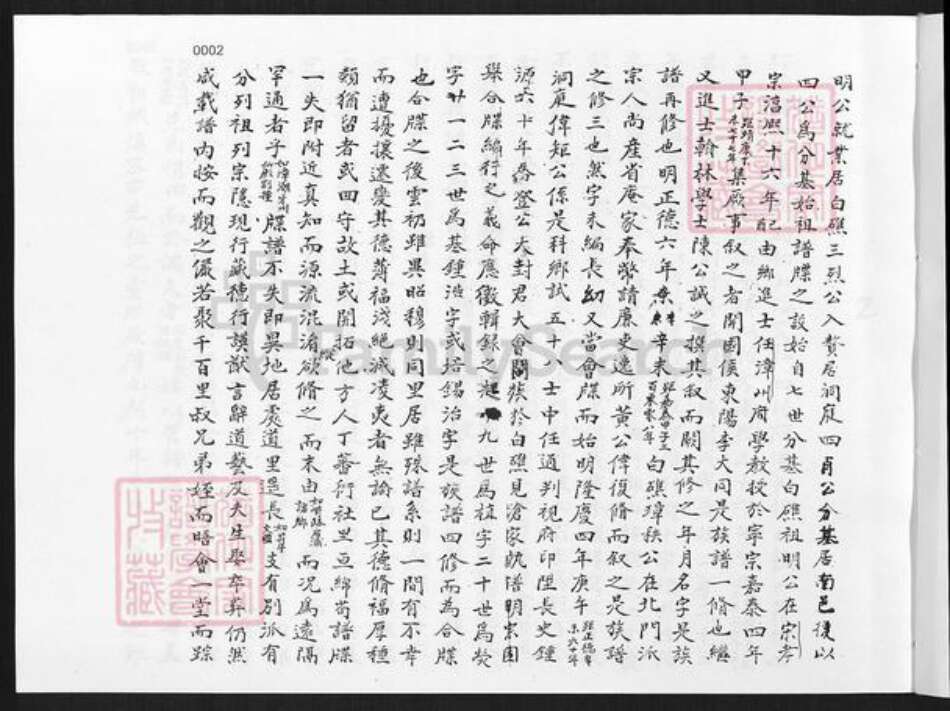 0002
明公就業居白礁三烈公入贅居洞庭四有公分基居南邑後以
四公為分基始祖譜牒之設始自七世分基白礁祖明公在宗孝
宗淳熙十六年配由鄉進士任漳州府學教授於寧宗嘉泰四年
甲子集厥事叙之者開國侯東陽李大同是族譜一脩也繼
又進士翰林學士陳公誠之撰其叙而闕其修之年月名字是族
譜再修也明正德六年辛未白礁璋秩公在北門派
宗人尚產省庵家奉幣請廉吏逸所黃公偉復脩而叙之是族譜
之修三也然字未編長幼又當會牒而始明隆慶四年庚午
洞庭偉矩公係是科鄉試五十八士中任通判視府印陞長史鍾
源六十年喬登公大對君大會闔族於白礁見滄家族譜明宗圖
舉合牒編行之義命應徵輯錄之起九世為植字二十世為熒
字廿一二三世為基鍾浩字或培錫治字是族譜四修而為合牒
也合牒之後雲礽雖異昭穆則同里居雖殊譜系則一間有不幸
而遭擾攘遷變其德薄福淺絕滅凌夷者無論已其德脩福厚種
類猶留者或四守故土或開拓他方人丁蕃衍社里亘綿苟譜牒
一失即附近真知而源流混淆欲脩之而末由而况為遠隔
罕通者乎牒譜不失即異地居處道里遥長支有別派有
分列祖列宗隱現行藏德行謨猷言辭道藝及夫生娶卒葬仍然
咸載譜內按而觀之儼若聚千百里叔兄弟姪而晤會一堂而踪
FamilySearch